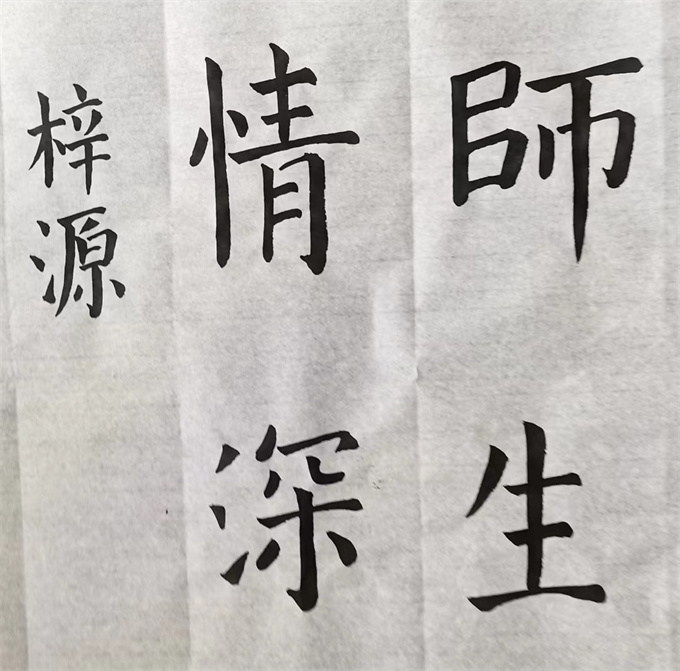 師生
情深
梓源